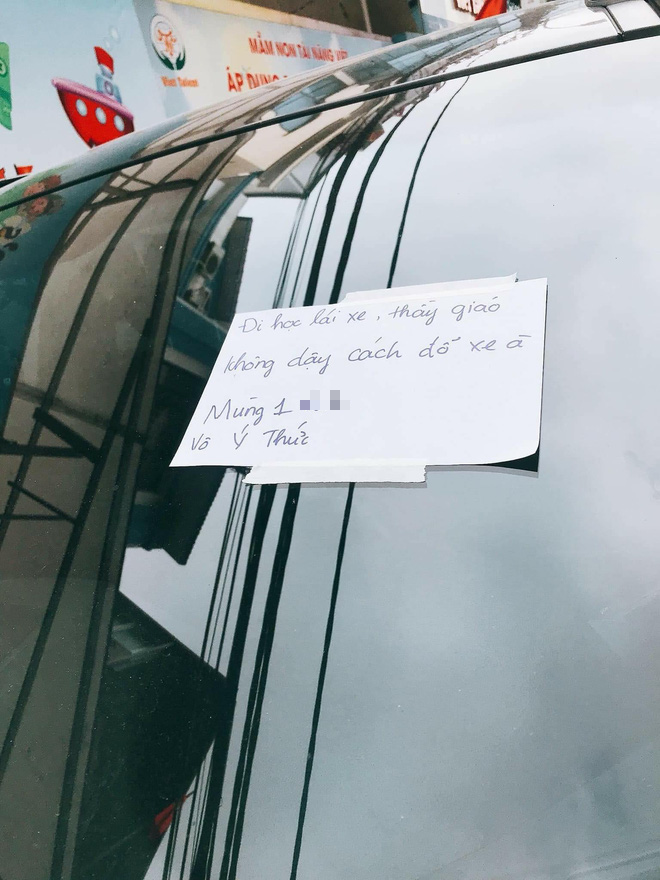 Viet Talent
MẦM NON TÀI NĂNG VIỆ
ÁP DỤNG
Đi học lái xe, thầy giáo
không dạy cách đỗ xe à
Mùng 1
Vô Ý Thức